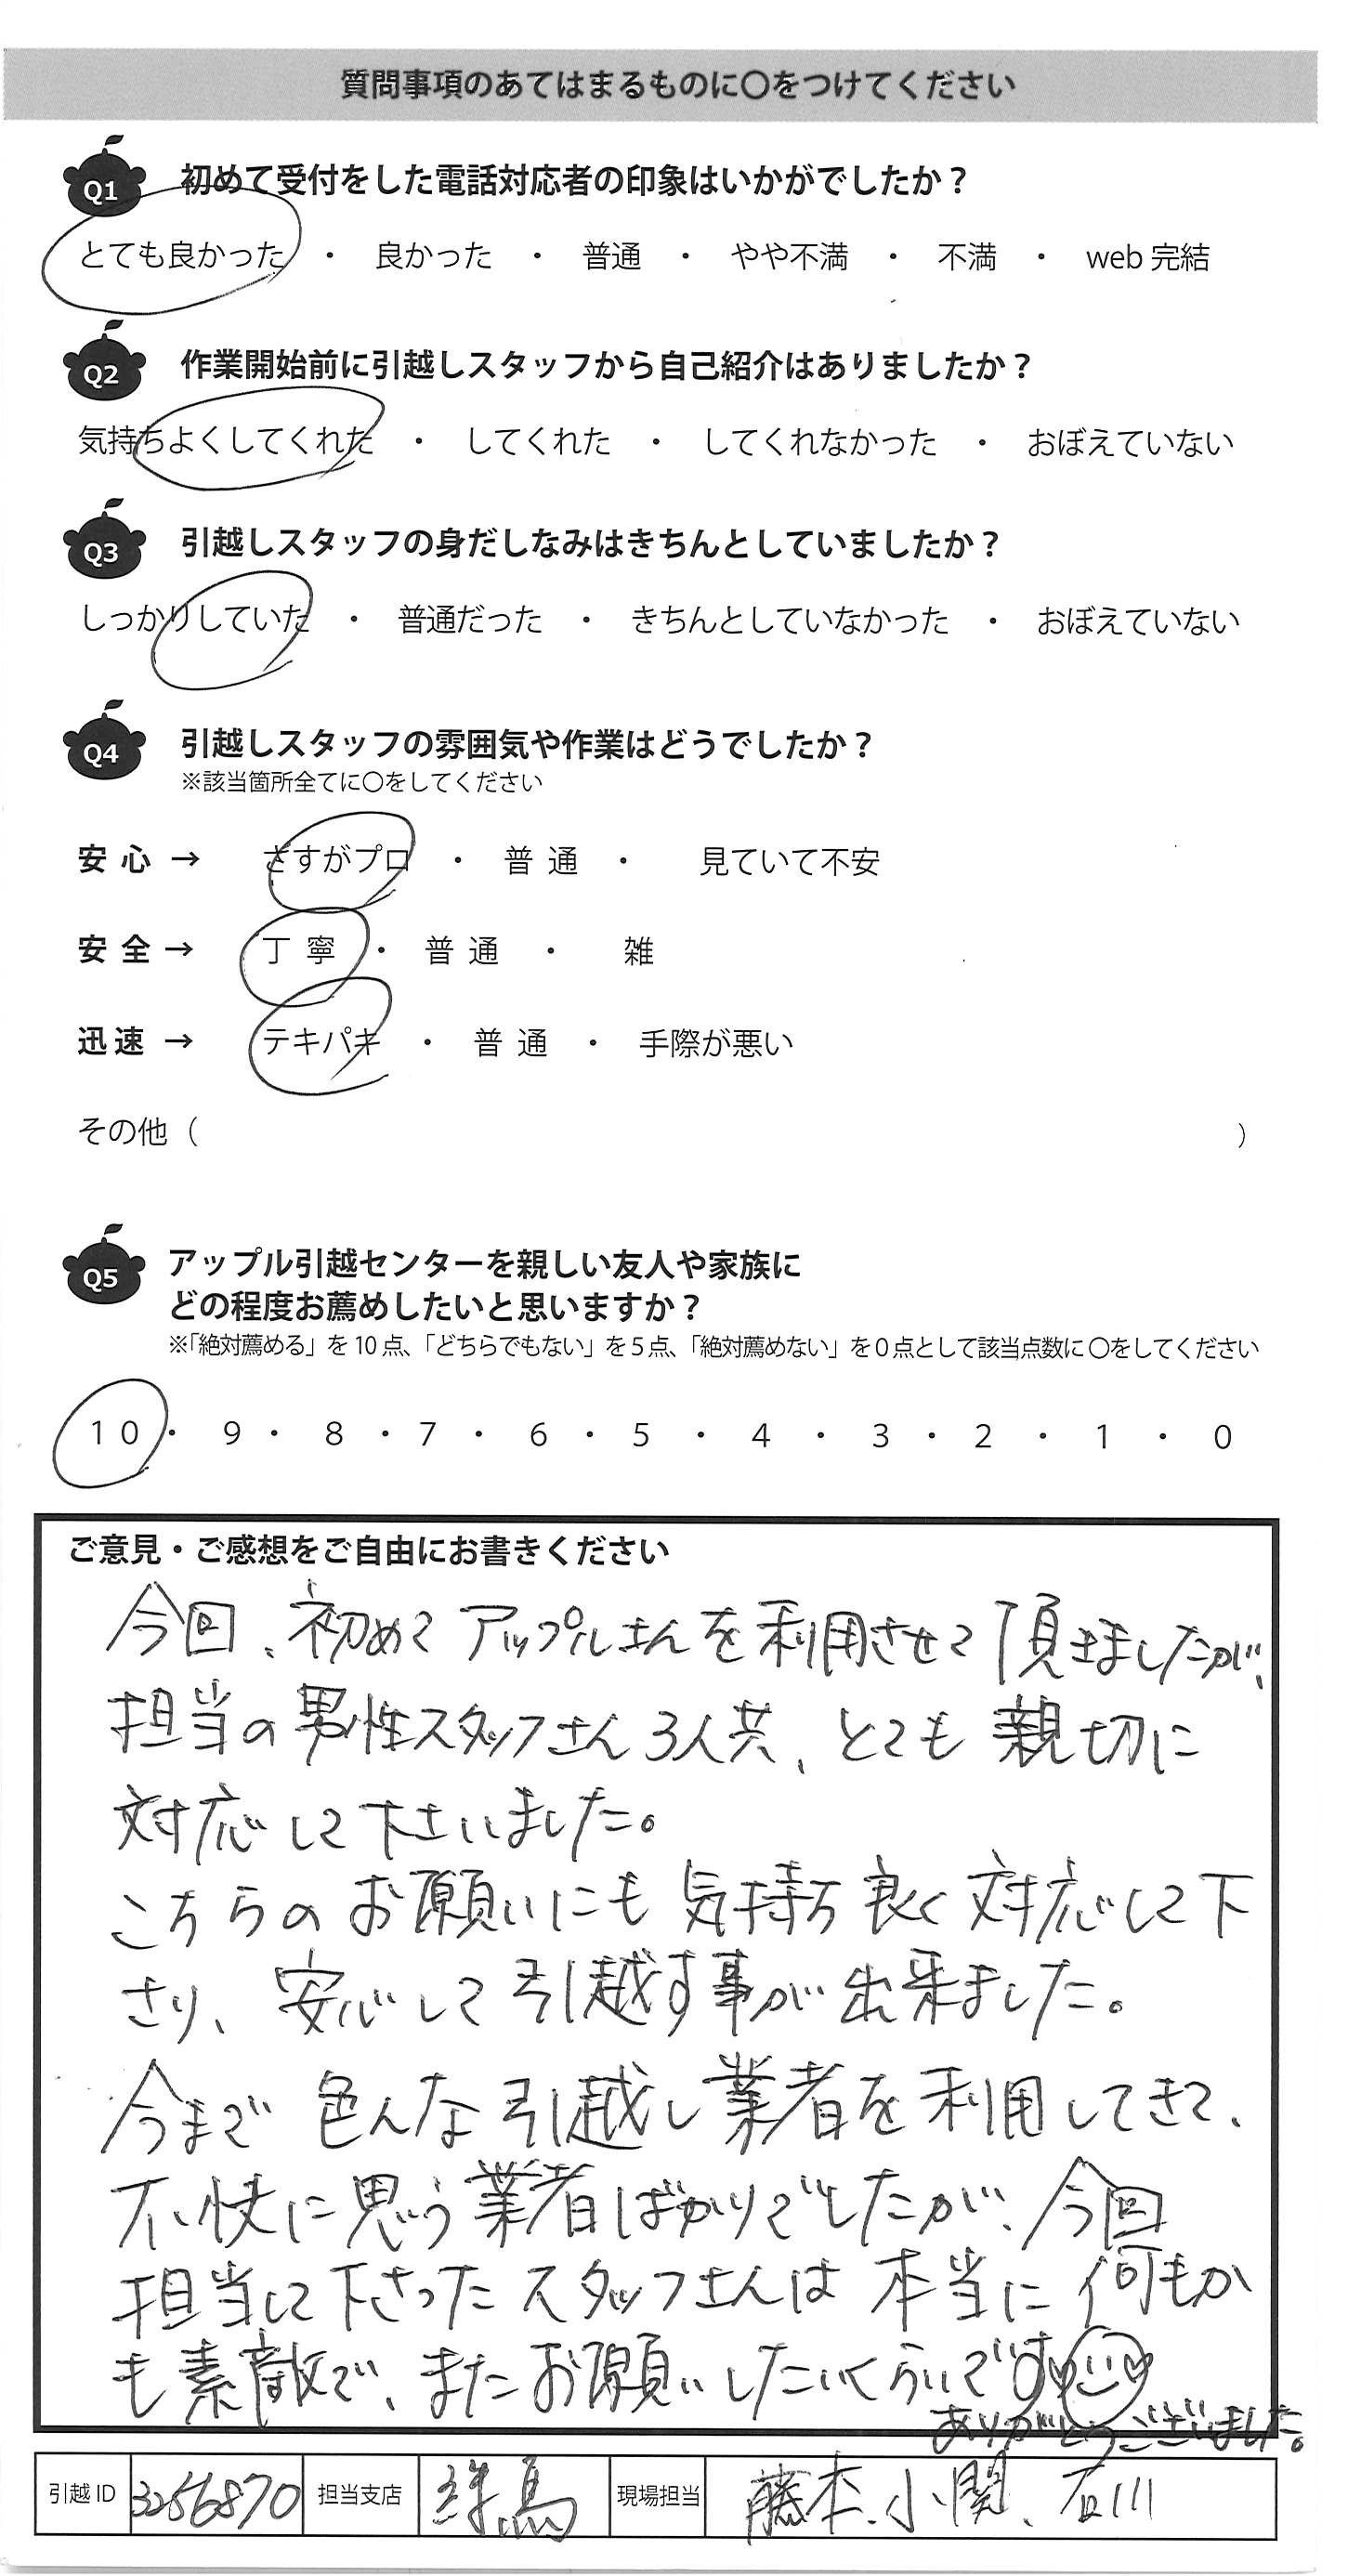 質問事項のあてはまるものに〇をつけてください
Q1 初めて受付をした電話対応者の印象はいかがでしたか？
とても良かった ・ 良かった ・ 普通 ・ やや不満 ・ 不満 ・ web 完結
Q2 作業開始前に引越しスタッフから自己紹介はありましたか？
気持ちよくしてくれた ・ してくれた ・ してくれなかった ・ おぼえていない
Q3 引越しスタッフの身だしなみはきちんとしていましたか？
しっかりしていた ・ 普通だった ・ きちんとしていなかった ・ おぼえていない
Q4 引越しスタッフの雰囲気や作業はどうでしたか？
※該当箇所全てに〇をしてください
安心 → さすがプロ ・ 普通 ・ 見ていて不安
安全 → 丁寧 ・ 普通 ・ 雑
迅速 → テキパキ ・ 普通 ・ 手際が悪い
その他（ ）
Q5 アップル引越センターを親しい友人や家族に
どの程度お薦めしたいと思いますか？
※「絶対薦める」を10点、「どちらでもない」を5点、「絶対薦めない」を0点として該当点数に〇をしてください
10 ・ 9 ・ 8 ・ 7 ・ 6 ・ 5 ・ 4 ・ 3 ・ 2 ・ 1 ・ 0
ご意見・ご感想をご自由にお書きください
今回、初めてアップルさんを利用させて頂きましたが、
担当の男性スタッフさん3人共、とても親切に
対応して下さいました。
こちらのお願いにも気持ち良く対応して下
さり、安心して引越す事が出来ました。
今まで色んな引越し業者を利用してきて、
不快に思う業者ばかりでしたが、今回
担当して下さったスタッフさんは本当に何もか
も素敵で、またお願いしたいくらいです
ありがとうございました。
引越ID 3256870 担当支店 練馬 現場担当 藤本、小関、石川